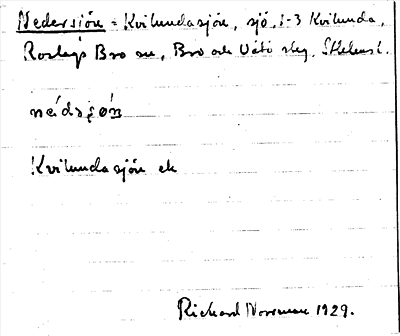 Nedersjön = Kvilundasjön, sjö, 1-3 Kvilunda,
Roslags Bro sn, Bro och Vätö slg, Sthlms l.
nédaʂøn
Kvilundasjön ek
Richard Norrman 1929.